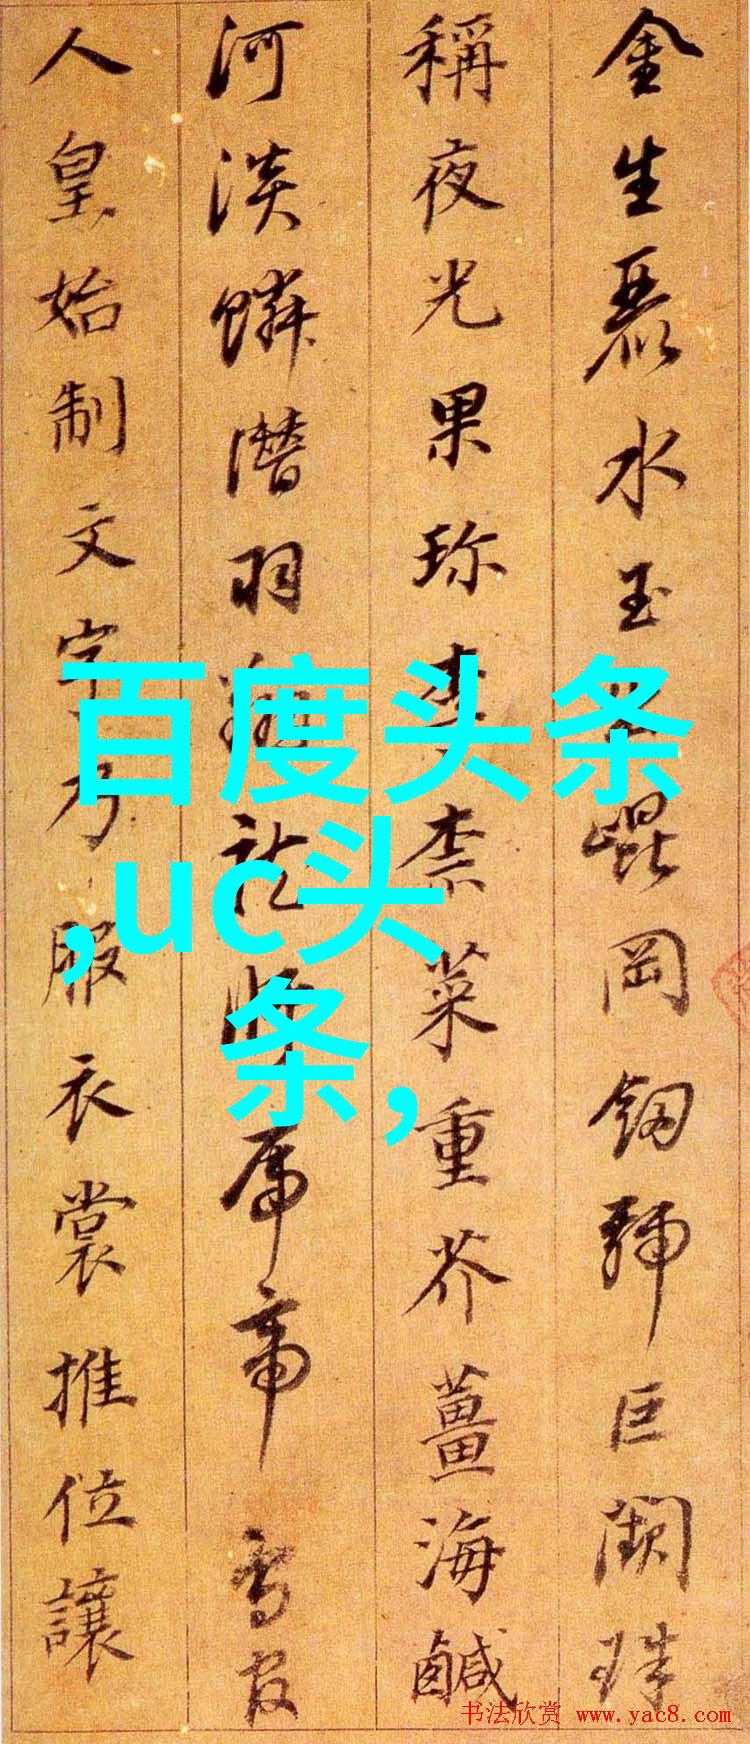 金生麗水玉出崐岡劒號巨闕珠
稱夜光果珍李柰菜重芥薑海鹹
河淡鱗潛羽翔龍師帝鳥官
人皇始制文字乃服衣裳推位讓
百度头条
,uc头
条,
书法欣赏 www.yac8.com